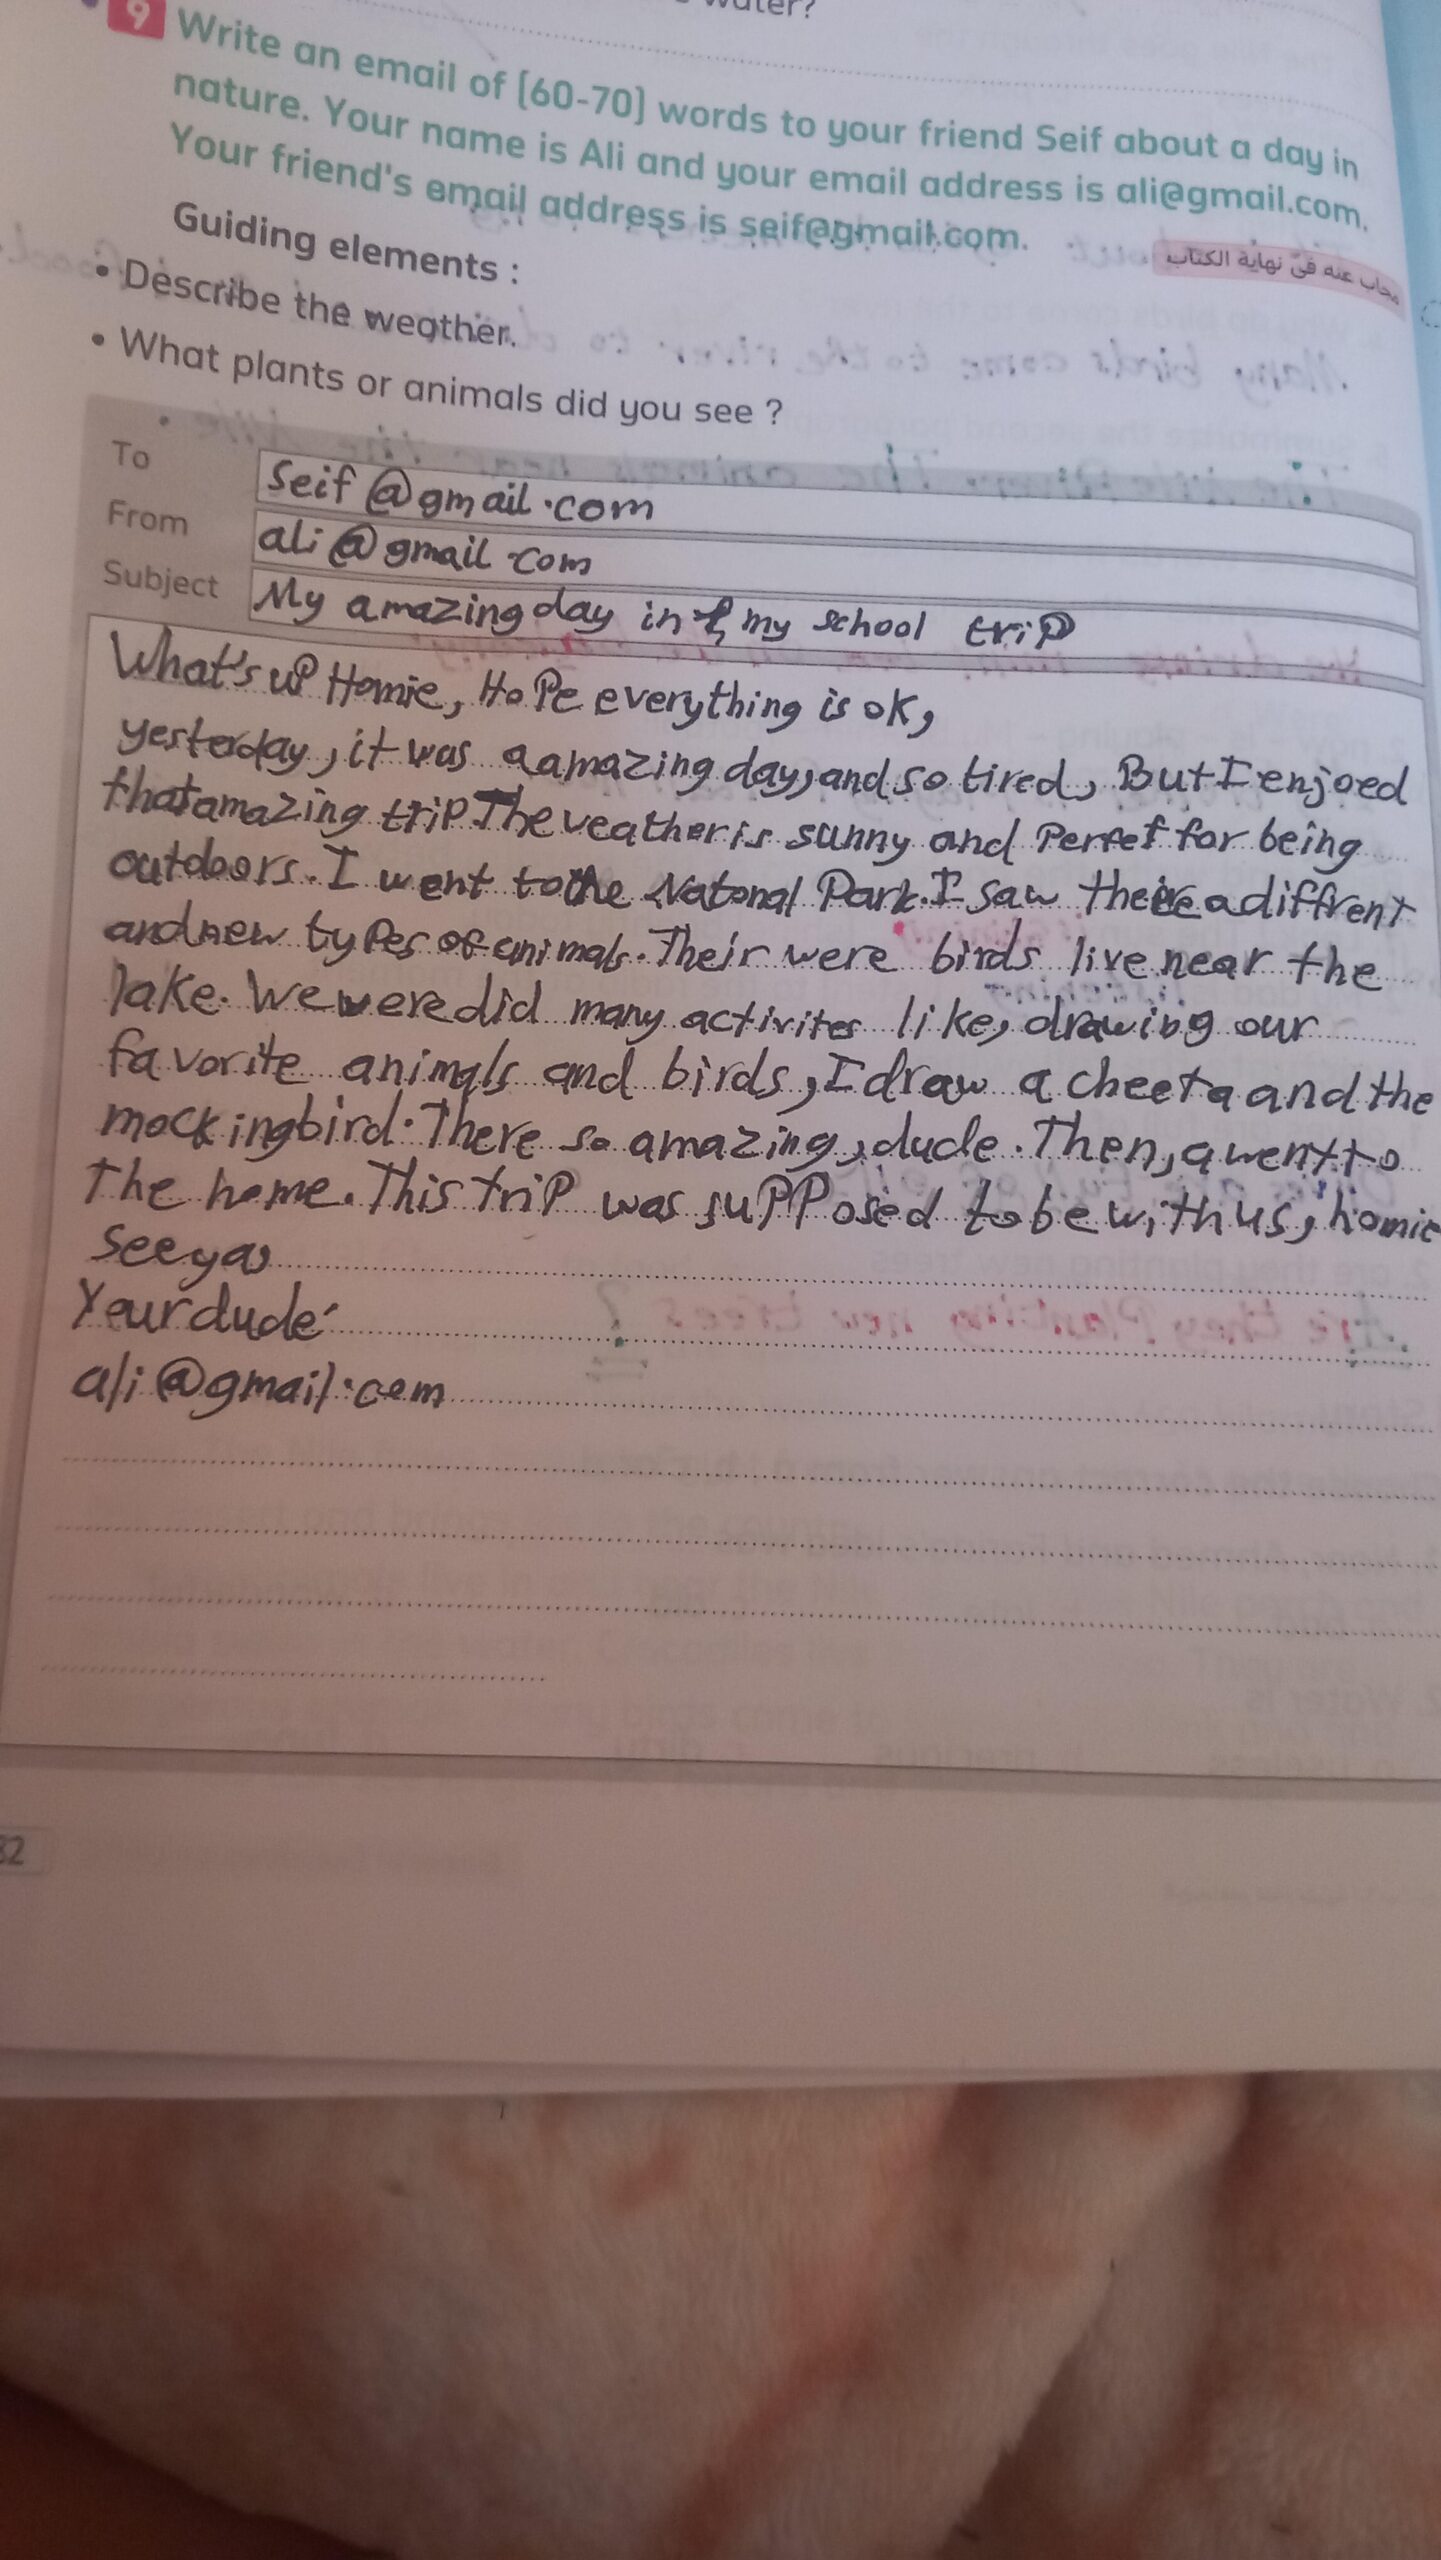 water?
9 Write an email of (60-70) words to your friend Seif about a day in
nature. Your name is Ali and your email address is ali@gmail.com.
Your friend's email address is seif@gmail.com.
مجاب عنه في نهاية الكتاب
Guiding elements :
• Describe the weather.
• What plants or animals did you see ?
To Seif@gmail.com
From ali@gmail.com
Subject My amazing day in my school trip
What's up Homie, Hope everything is ok,
yesterday, it was a amazing day, and so tired, But I enjoed
that amazing trip The veather is sunny and Perfet for being
outdoors. I went to the Natonal Park. I saw a diffrent
and new types of animals. Their were birds live near the
lake. We were did many activites like, drawing our
favorite animals and birds, I draw a cheeta and the
mockingbird. There so amazing, dude. Then, a went to
the home. This trip was supposed to be with us, homie
See ya,
Your dude:
ali@gmail.com
32